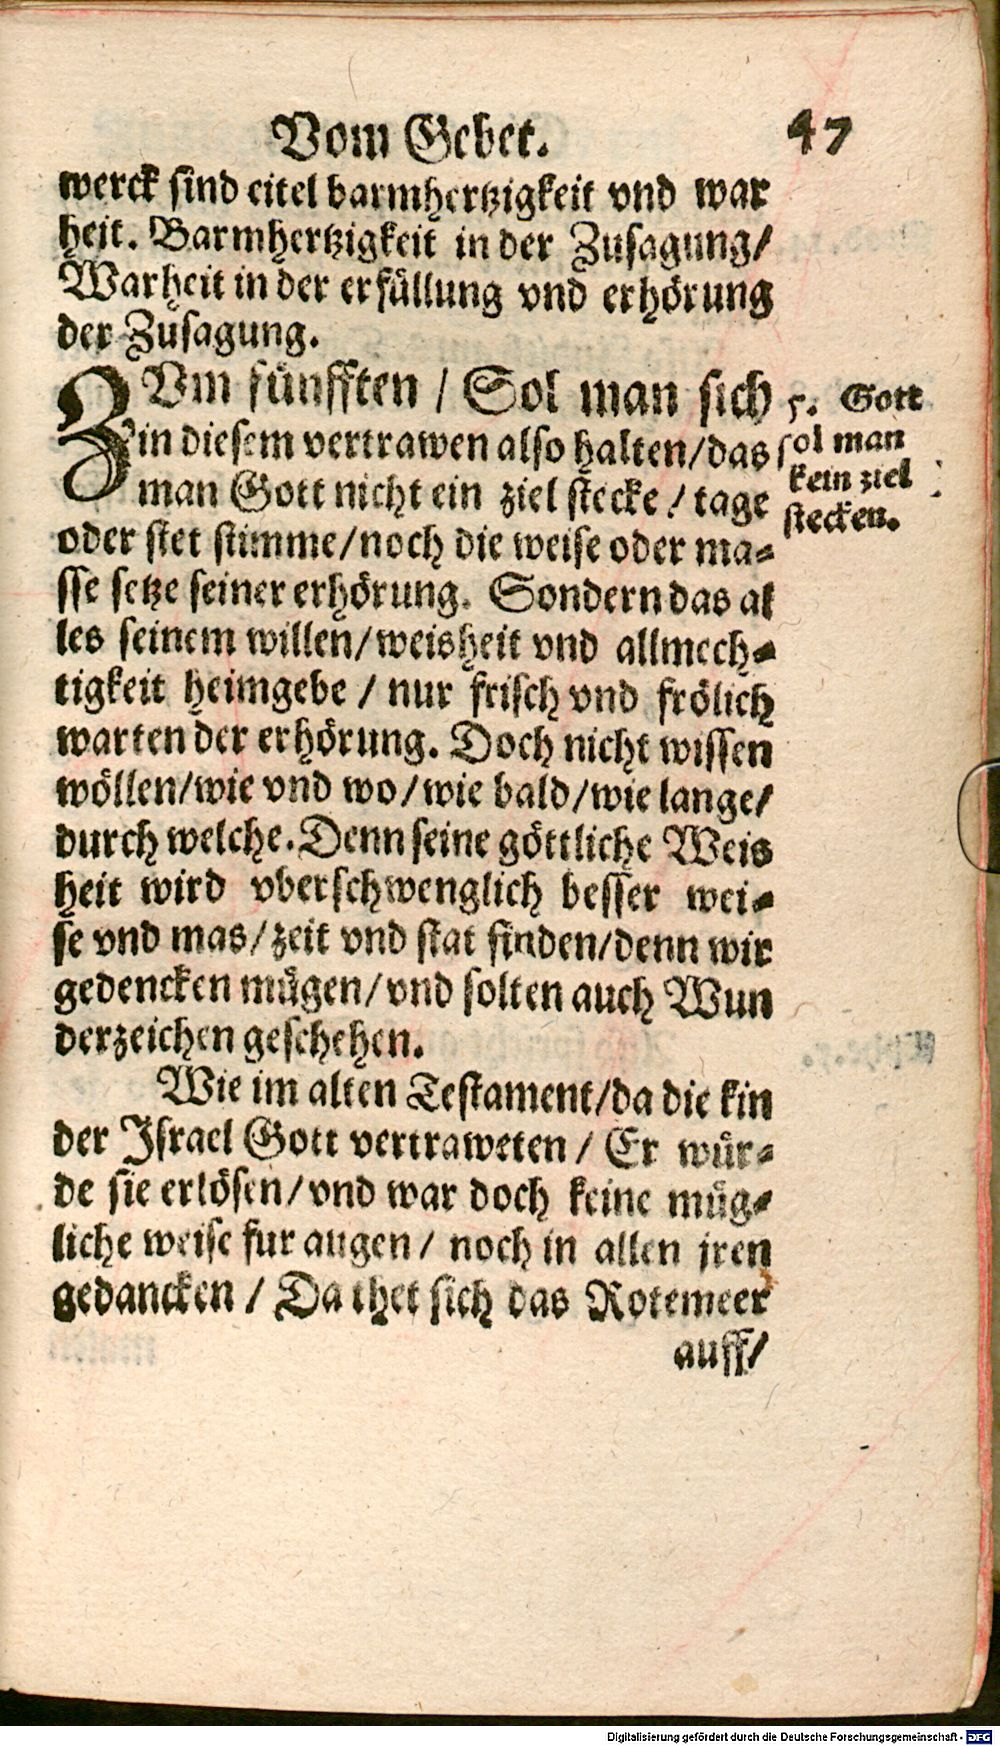 Vom Gebet. 47
werck sind eitel barmhertzigkeit vnd war
heit. Barmhertzigkeit in der Zusagung/
Warheit in der erfüllung vnd erhörung
der Zusagung.
ZVm fünfften / Sol man sich
in diesem vertrawen also halten/das
man Gott nicht ein ziel stecke / tage
oder stet stimme/noch die weise oder ma-
sse setze seiner erhörung. Sondern das al
les seinem willen/weisheit vnd allmech-
tigkeit heimgebe / nur frisch vnd frölich
warten der erhörung. Doch nicht wissen
wöllen/wie vnd wo/wie bald/wie lange/
durch welche. Denn seine göttliche Weis
heit wird vberschwenglich besser wei-
se vnd mas/zeit vnd stat finden/denn wir
gedencken mügen/vnd solten auch Wun
derzeichen geschehen.
Wie im alten Testament/da die kin
der Israel Gott vertraweten / Er wür-
de sie erlösen/vnd war doch keine müg-
liche weise fur augen / noch in allen jren
gedancken / Da thet sich das Rotemeer
auff/
5. Gott
sol man
kein ziel
stecken.
Digitalisierung gefördert durch die Deutsche Forschungsgemeinschaft - DFG